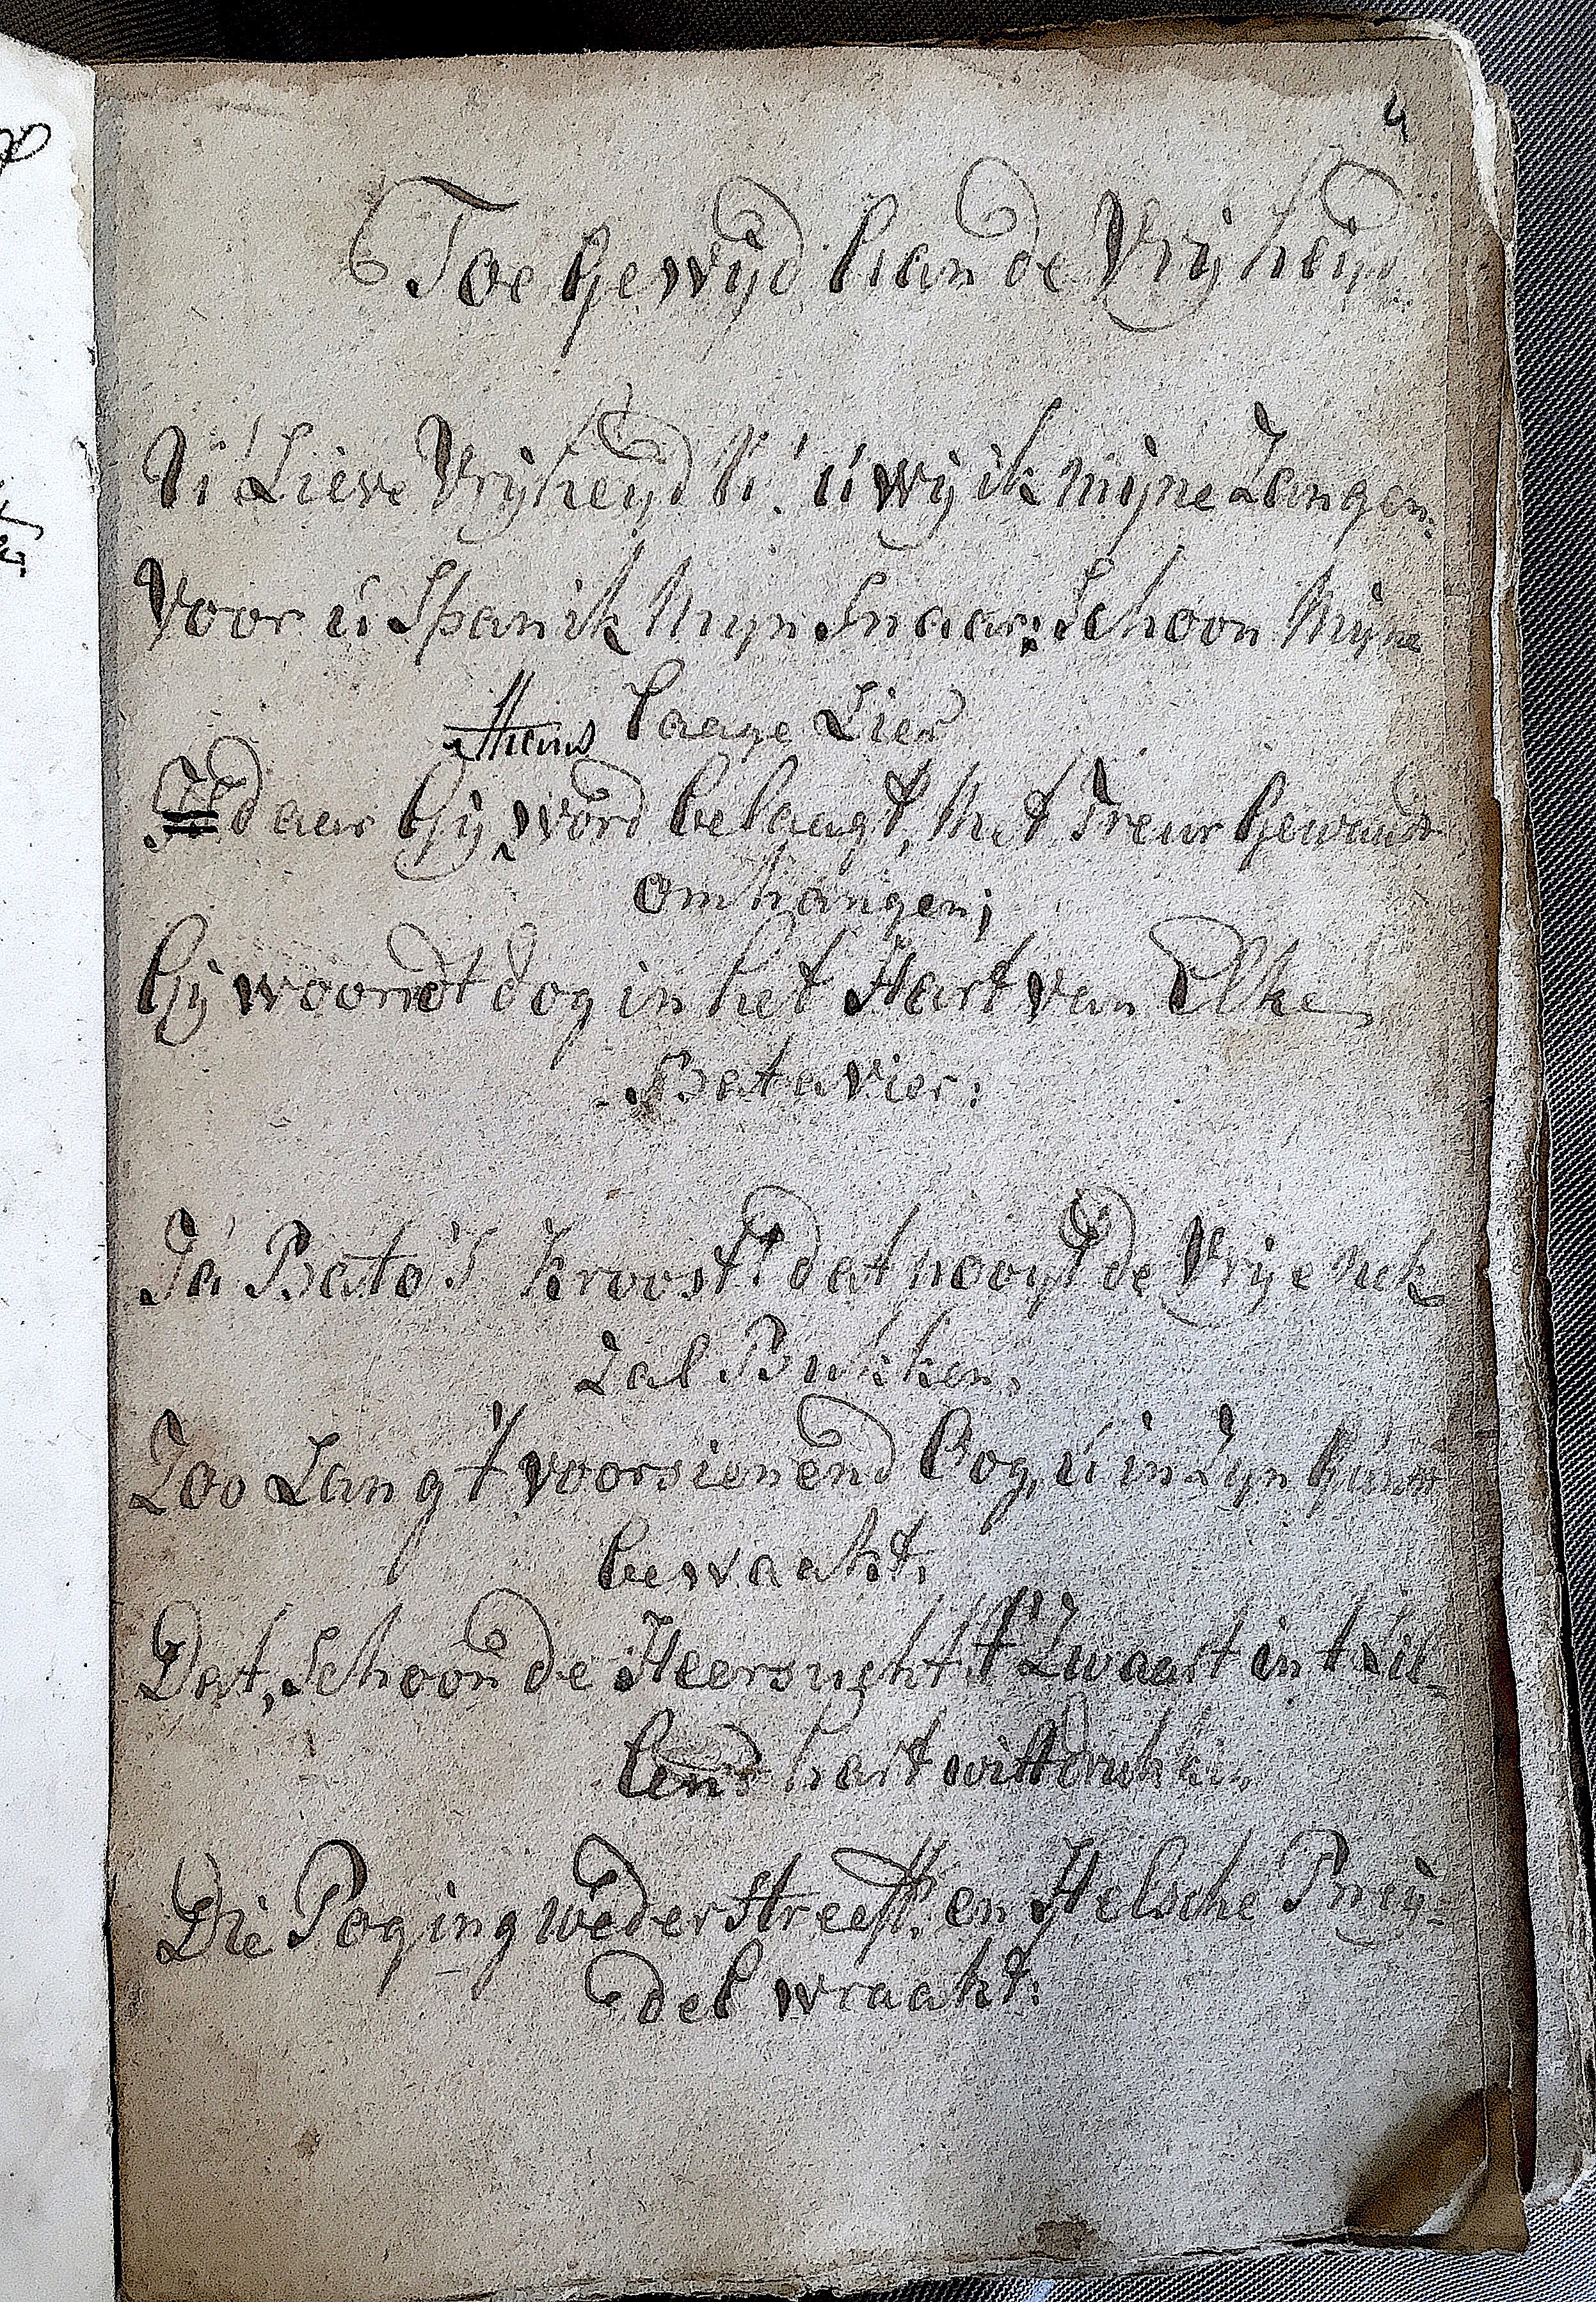 4
Toe Gewyd aan de Vrijheijd
U Lieve Vrijheijd U! ú wij ik mijne Zangen.
Voor ú Span ik Mijn Snaar; Schoon Mijne
Laage Lier
Thans
daar Gij word belaagt, Met Treur Gewaad
omhangen;
Gij woondt dog in het Hart van Elke
Batavier:
Ja Bato's Kroost! dat nooyt de Vrije Nek
Zal Bukken,
Zoo Lang 't voorsienend Oog, ú in Zijn Gunst
bewaakt,
Dat, Schoon de Heersught 't Zwaart in tril-
lend hart wil drukken,
Die Poging wederstreeft, en Helsche Dwin-
del wraakt: